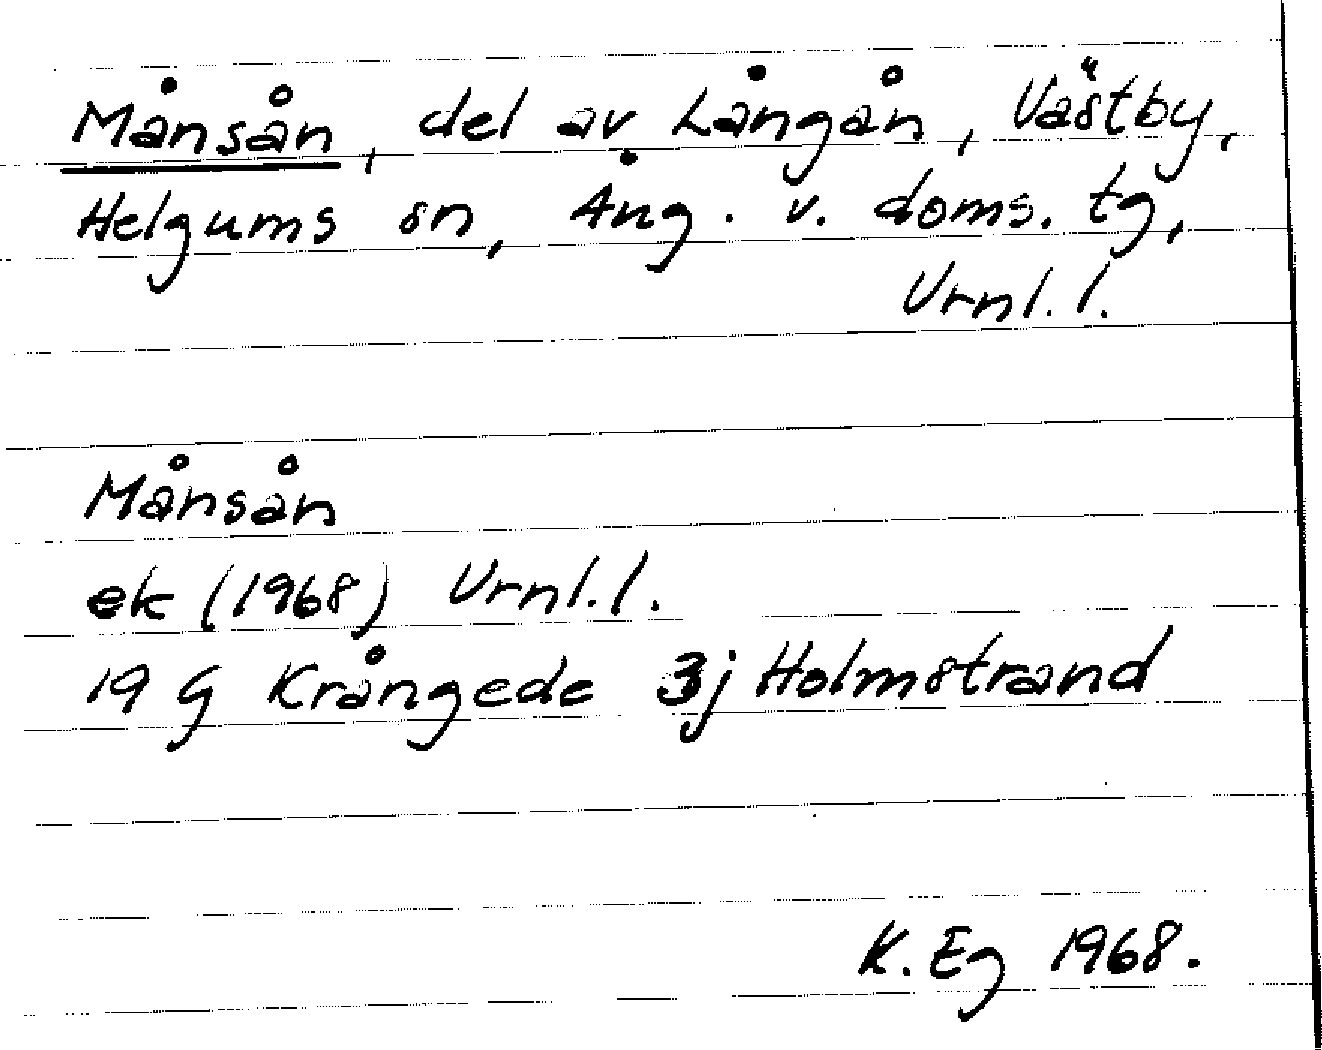 Månsån, del av Långån, Västby,
Helgums sn, Ång. v. doms. tg,
Urnl. l.
Månsån
ek (1968) Urnl. l.
19 G Krångede 3j Holmstrand
K. Eg 1968.